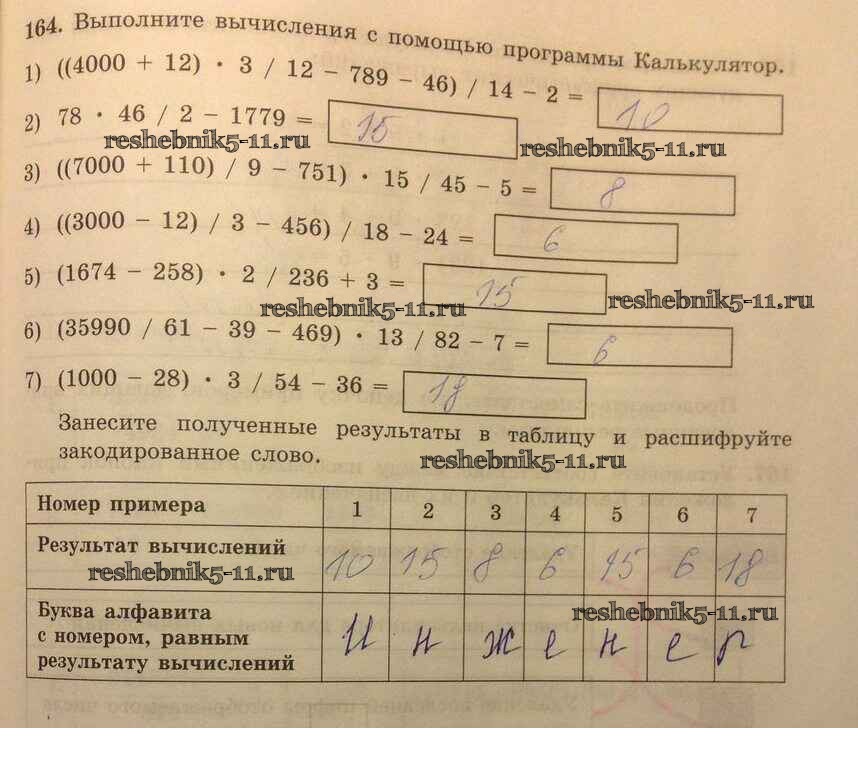 164. Выполните вычисления с помощью программы Калькулятор.
1) ((4000 + 12) · 3 / 12 – 789 – 46) / 14 – 2 = 10
2) 78 · 46 / 2 – 1779 = 15
reshebnik5-11.ru reshebnik5-11.ru
3) ((7000 + 110) / 9 – 751) · 15 / 45 – 5 = 8
4) ((3000 – 12) / 3 – 456) / 18 – 24 = 6
5) (1674 – 258) · 2 / 236 + 3 = 15
reshebnik5-11.ru reshebnik5-11.ru
6) (35990 / 61 – 39 – 469) · 13 / 82 – 7 = 6
7) (1000 – 28) · 3 / 54 – 36 = 18
Занесите полученные результаты в таблицу и расшифруйте
закодированное слово.
reshebnik5-11.ru
Номер примера 1 2 3 4 5 6 7
Результат вычислений 10 15 8 6 15 6 18
reshebnik5-11.ru
Буква алфавита
с номером, равным
результату вычислений и н ж е н е р
reshebnik5-11.ru